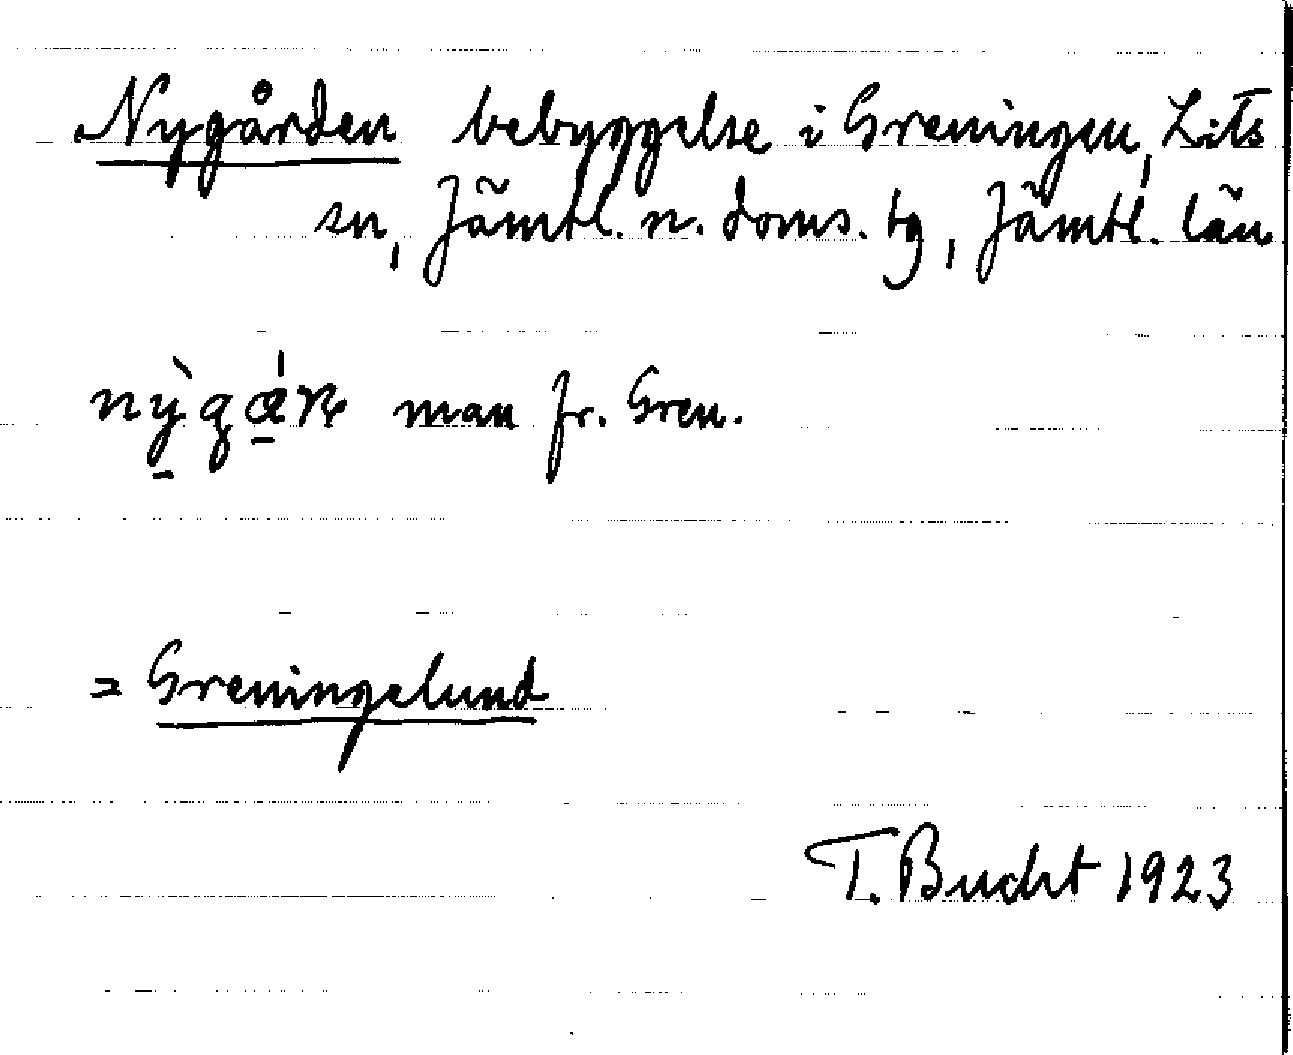 Nygården bebyggelse i Greningen, Lits
sn, Jämtl. n. doms. tg, Jämtl. län
man fr. Gren.
= Greningelund
T. Bucht 1923